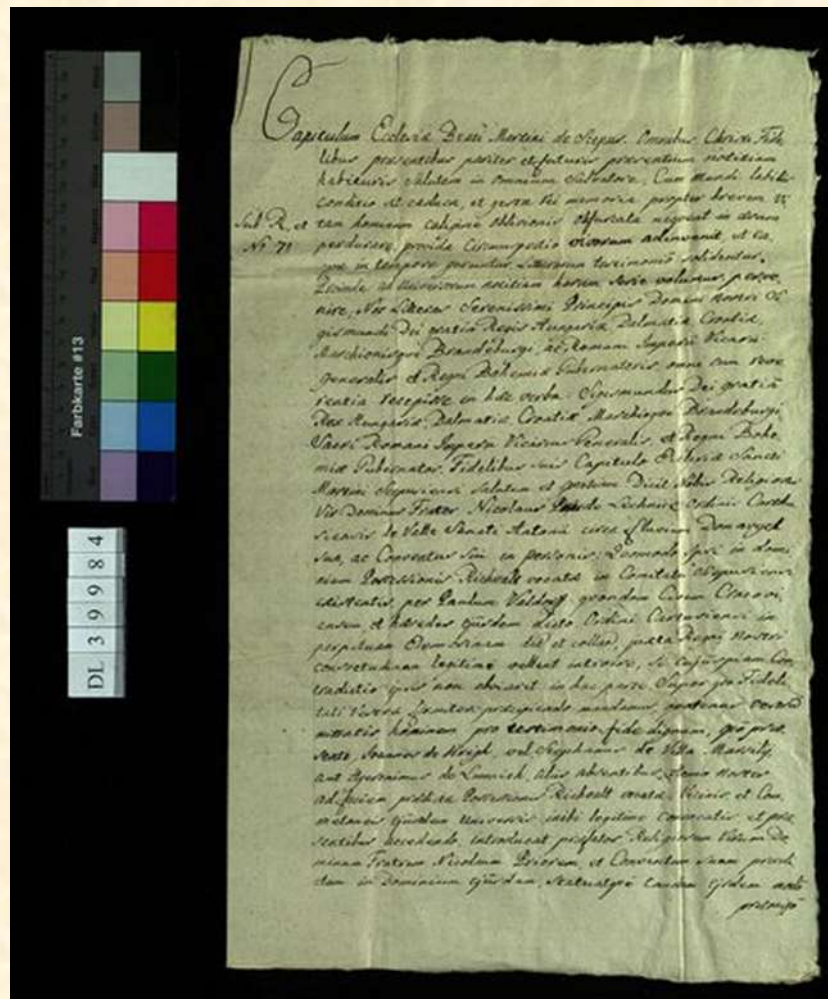 Capitulum Ecclesiæ Beati Martini de Scepus. Omnibus Christi Fide
libus præsentibus pariter et futuris præsentium notitiam
habituris salutem in omnium Salvatore. Cum mundi labilis
conditio sit caduca, et gesta rei memoriæ propter brevem vi
Sub R. et
tam hominum caligine oblivionis obfuscata nequeat in ævum
Nº 71
perducere, provida circumspectio virorum adinvenit, ut ea
quæ in tempore geruntur, Litterarum testimonio solidentur.
Proinde ad universorum notitiam harum serie volumus perve
nire, Nos Litteras Serenissimi Principis Domini nostri Si
gismundi Dei gratia Regis Hungariæ, Dalmatiæ, Croatiæ,
Marchionisque Brandeburgi, ac Romani Imperii Vicarii
generalis et Regni Bohemiæ Gubernatoris, omni cum reve
rentia recepisse in hæc verba. Sigismundus Dei gratia
Rex Hungariæ, Dalmatiæ, Croatiæ, Marchioque Brandeburgi
Sacri Romani Imperii Vicarius Generalis, et Regni Bohe
miæ Gubernator. Fidelibus suis Capitulo Ecclesiæ Sancti
Martini Scepusiensi salutem et gratiam. Dicit Nobis Religiosus
Vir Dominus Frater Nicolaus Lechnicz ordinis Carthu
siensis de Valle Sancti Antonii circa fluvium Donavyecz
sua, ac Conventus sui in personis: Quomodo ipsi in domi
nium Possessionis Richvalt vocatæ in Comitatu Scepusiensi
existentis, per Paulum Valdorff, quondam Civem Cracovi
ensem, et hæredes ejusdem dicto Ordini Cartusiensi in
perpetuam Elemosinam et collatæ, juxta Regni nostri
consvetudinem legitime vellent introire, si cujuspiam Con
tradictio ipsis non obviaret in hac parte. Super quo Fideli
tati Vestræ firmiter præcipiendo mandamus, quatenus vestrum
mittatis hominem pro testimonio fide dignum, quo præ
sente, Joannes de vel Stephanus de Villa
aut Hyeronimus de aliis absentibus, homo noster
ad faciem prædictæ Possessionis Richvalt vocatæ Vicinis, et Com
metaneis ejusdem universis inibi legitime convocatis, et præ
sentibus accedendo, introducat præfatos Religiosum Virum Do
minum Fratrem Nicolaum Priorem, et Conventum suum prædic
tum in Dominium ejusdem, statuatque eandem ejsdem

Farbkarte #13
DL 39984